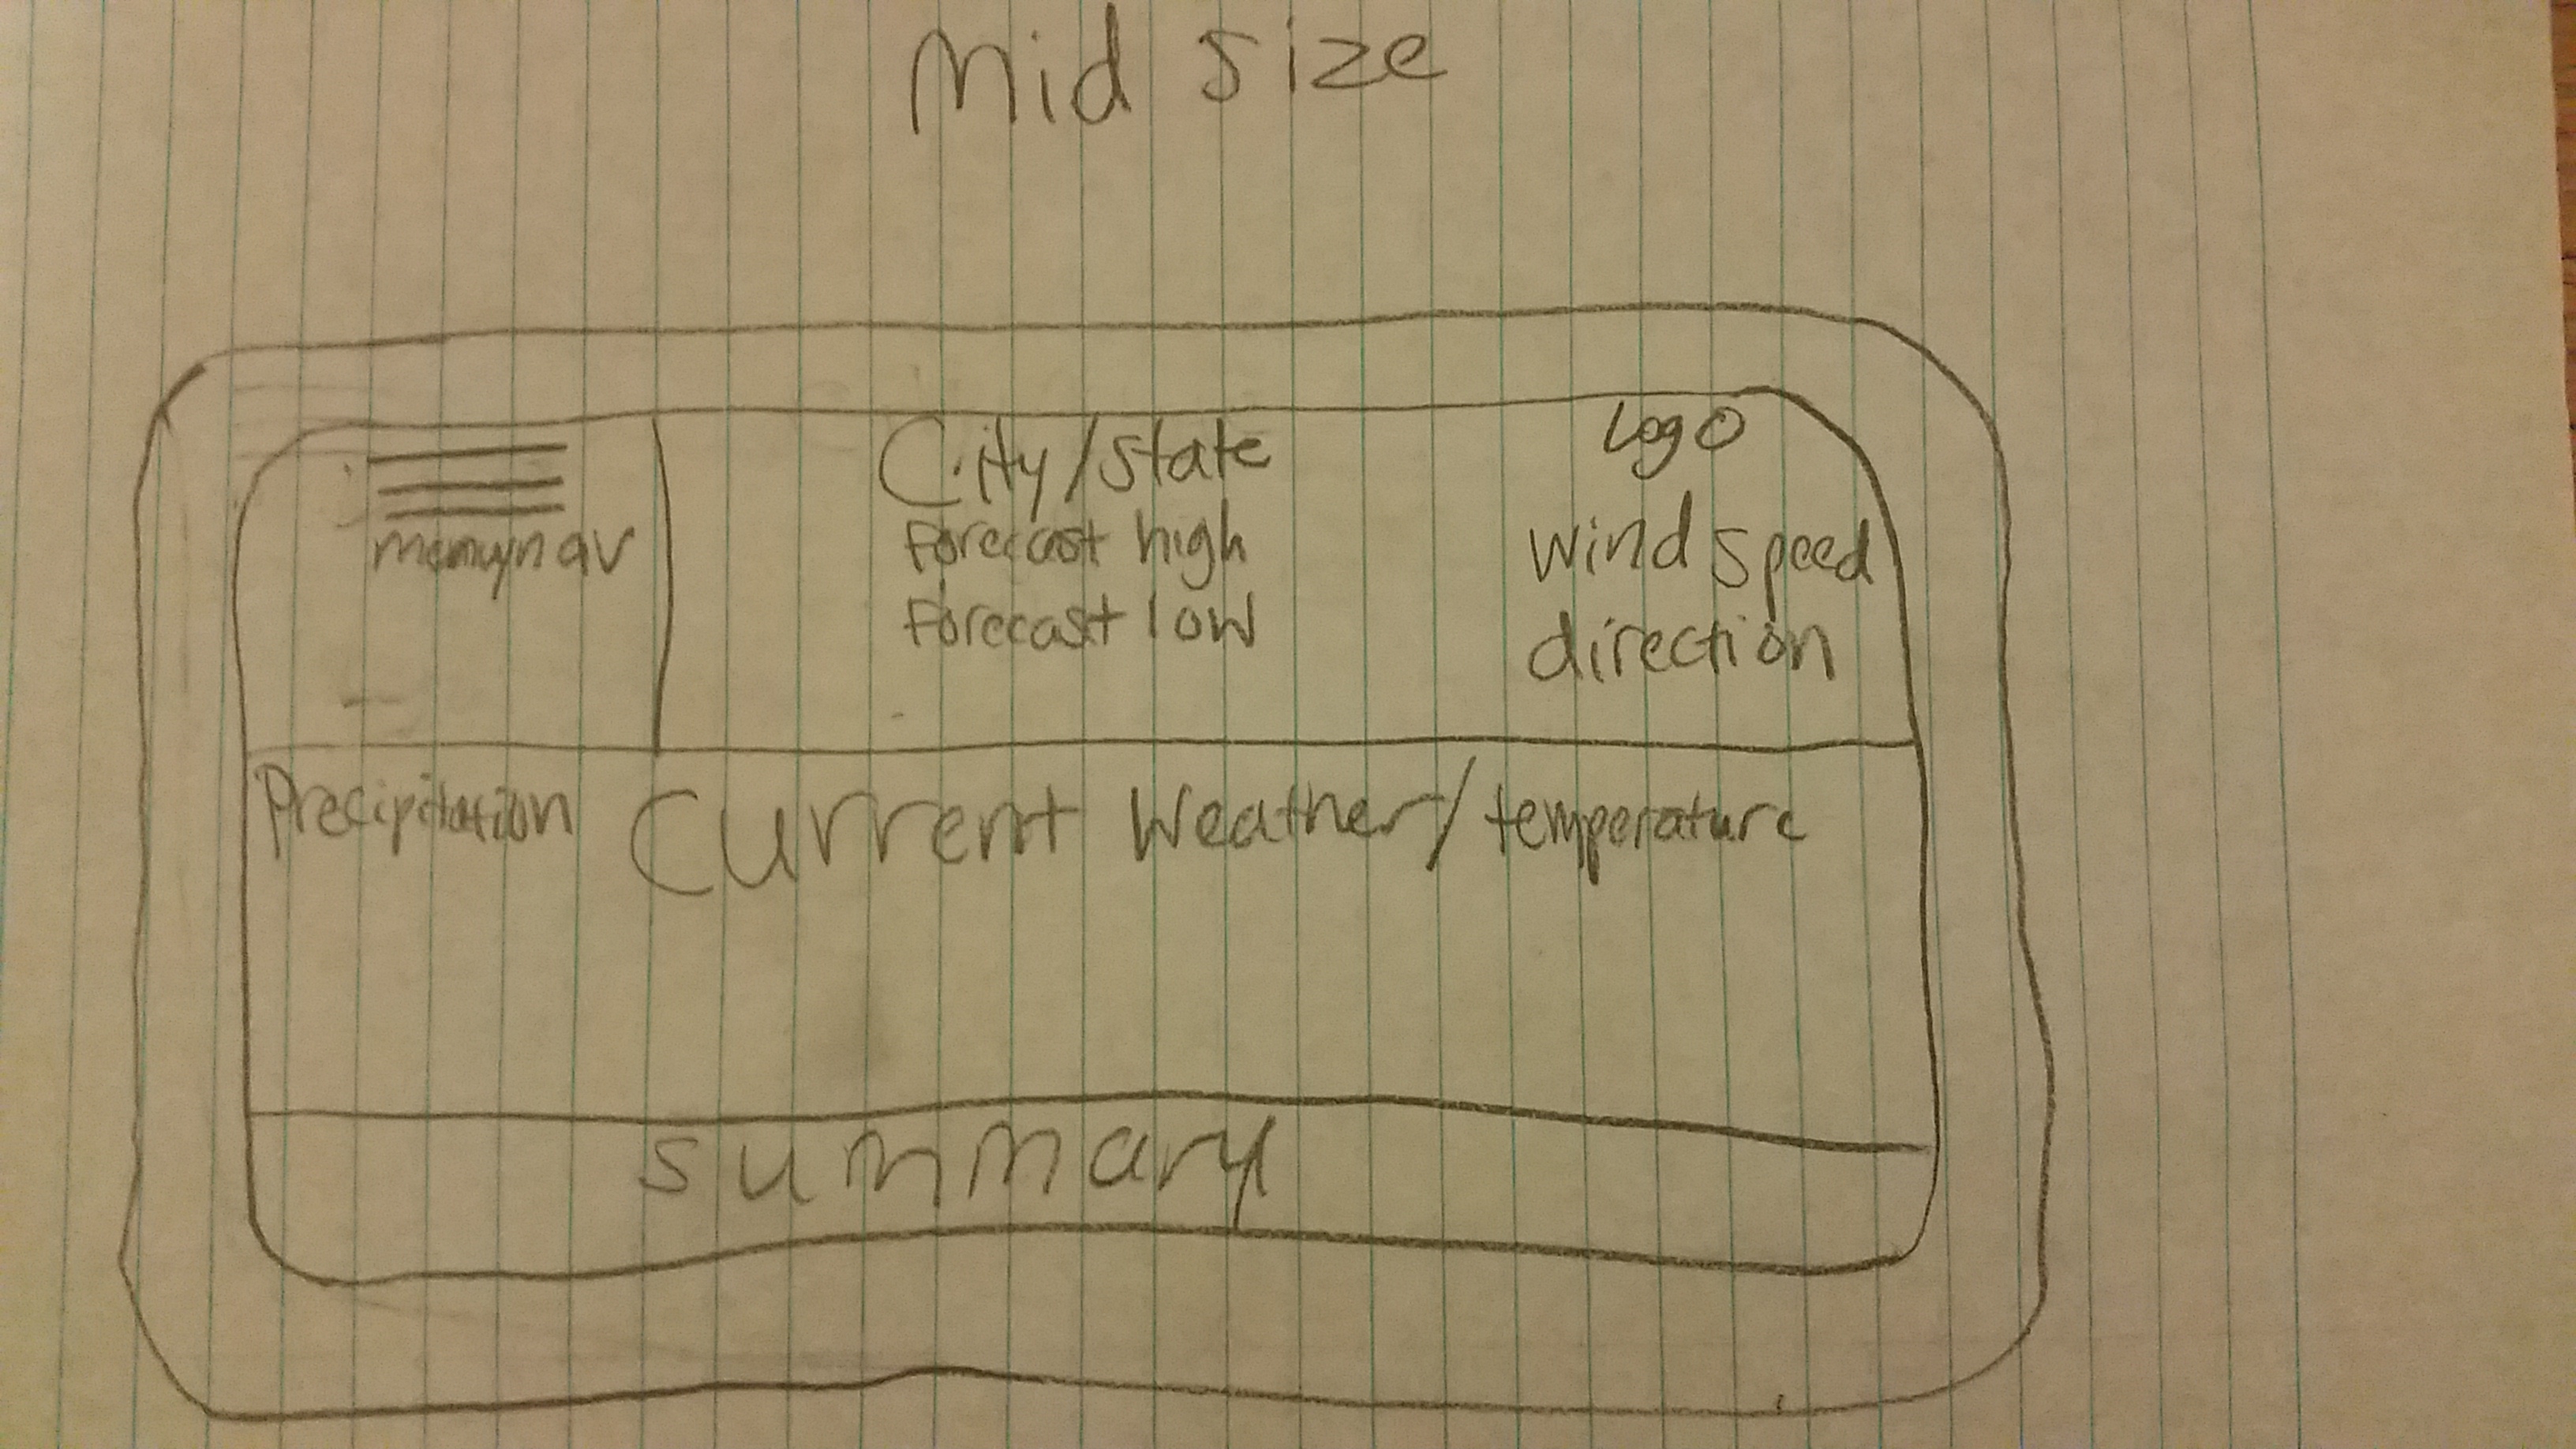 Mid size
City/state
Logo
menu/nav
Forecast high
Forecast low
wind speed
direction
Precipitation Current Weather/temperature
summary